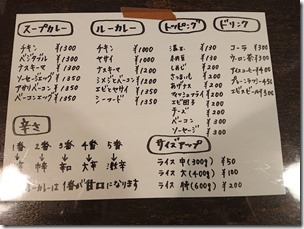 スープカレー
チキン ¥1300
ベジタブル ¥1300
ナスキーマ ¥1300
ソーセージエッグ ¥1350
アサリベーコン ¥1350
ベーコンエッグ ¥1350
ルーカレー
チキン ¥1000
ヤサイ ¥1000
ナスキーマ ¥1200
ベーコン ¥1200
エビとヤサイ ¥1350
シーフード ¥1350
トッピング
温玉 ¥130
納豆
しめじ
さつまいも
あげナス ¥200
マッシュフライ ¥200
エビ団子 ¥200
チーズ ¥200
ベーコン ¥300
ソーセージ ¥300
ドリンク
コーラ ¥300
ウーロン茶 ¥300
アイスコーヒー
¥500
辛さ
1番 2番 3番 4番 5番
中辛 辛口 大辛 激辛
ルーカレーは1番が甘口になります
サイズアップ
ライス 中(300g) ¥50
ライス 大(400g) ¥100
ライス 特(600g) ¥200